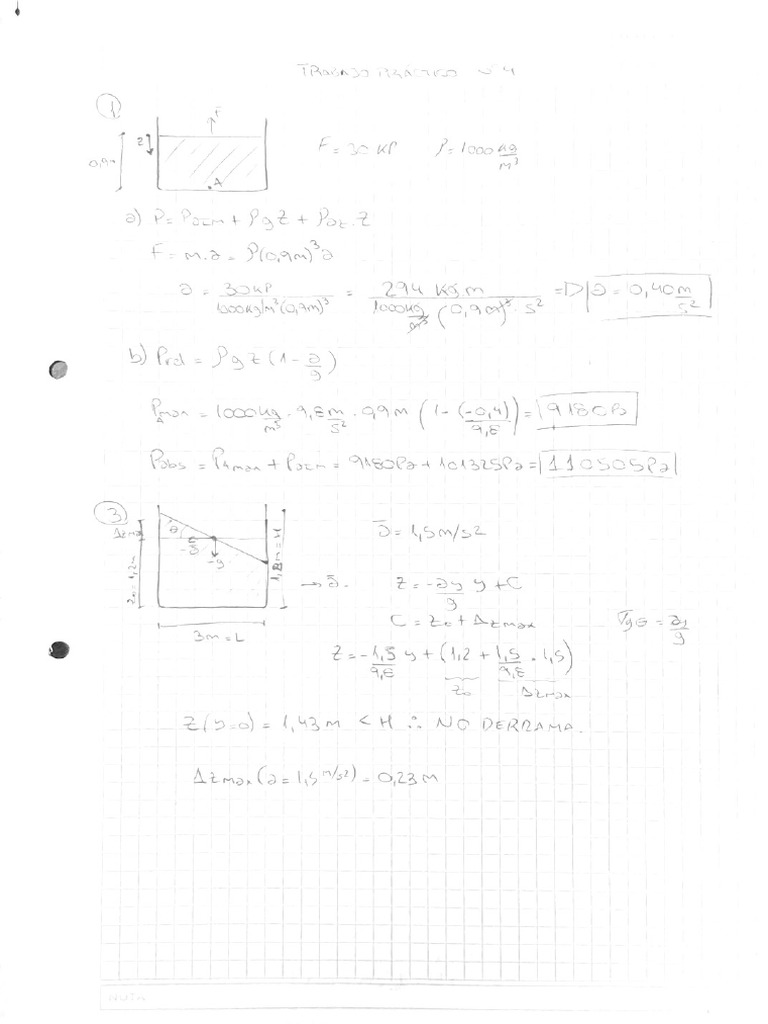 TRABAJO PRÁCTICO Nº4
①
F
z
0,9m
A
F = 30 KP ρ = 1000 kg/m³
a) P = Patm + ρgz + ρaz.z
F = m.a = ρ(0,9m)³a
a = 30KP / 1000kg/m³(0,9m)³ = 294 kg.m / 1000kg/m³ (0,9m)³ . s² => a = 0,40 m/s²
b) Prel = ρgz(1 - a/g)
PAmax = 1000kg/m³ . 9,8m/s² . 0,9m (1 - (-0,4)/9,8) = 9180Pa
Pabs = PAmax + Patm = 9180Pa + 101325Pa = 110505Pa
③
Δzmax
θ
-a
-g
z0 = 1,2m
1,8m = H
→ a.
3m = L
a = 1,5m/s2
z = -ay/g y + C
C = z0 + Δzmax
Tgθ = ay/g
z = -1,5/9,8 y + (1,2 + 1,5/9,8 . 1,5)
z0 Δzmax
z(y=0) = 1,43 m < H ∴ NO DERRAMA.
Δzmax(a = 1,5 m/s²) = 0,23 m
NOTA